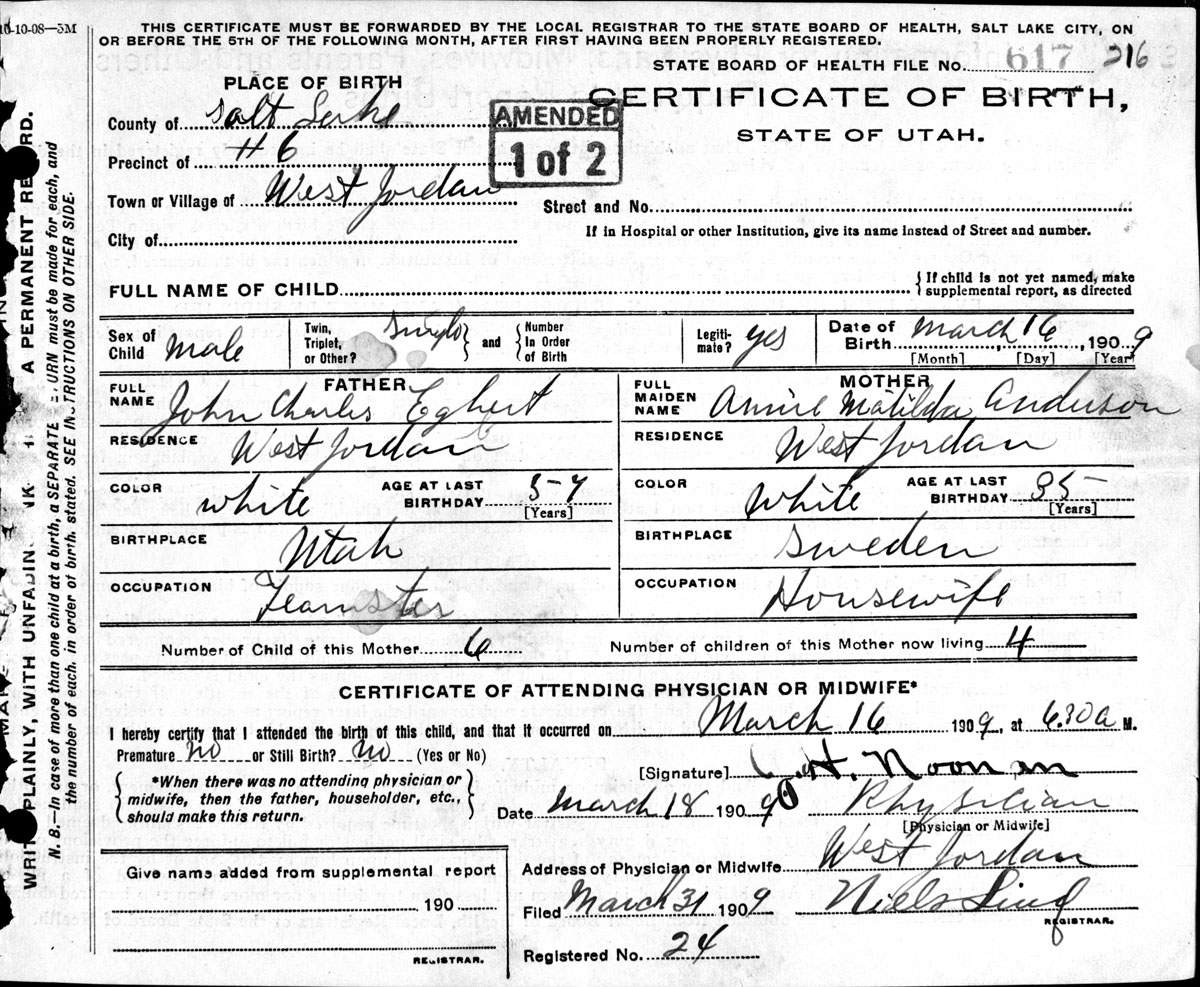 10-10-08—5M
THIS CERTIFICATE MUST BE FORWARDED BY THE LOCAL REGISTRAR TO THE STATE BOARD OF HEALTH, SALT LAKE CITY, ON
OR BEFORE THE 5TH OF THE FOLLOWING MONTH, AFTER FIRST HAVING BEEN PROPERLY REGISTERED.
STATE BOARD OF HEALTH FILE No. 617 216
PLACE OF BIRTH
CERTIFICATE OF BIRTH,
STATE OF UTAH.
AMENDED
1 of 2
County of Salt Lake
Precinct of #6
Town or Village of West Jordan
Street and No.
City of
If in Hospital or other Institution, give its name instead of Street and number.
FULL NAME OF CHILD
{If child is not yet named, make
supplemental report, as directed
Sex of Child Male
Twin, Triplet, or Other? Single } and { Number In Order of Birth
Legiti-mate? yes
Date of Birth March 16, 1909
[Month] [Day] [Year]
FATHER
FULL NAME John Charles Egbert
RESIDENCE West Jordan
COLOR White AGE AT LAST BIRTHDAY 57
[Years]
BIRTHPLACE Utah
OCCUPATION Teamster
MOTHER
FULL MAIDEN NAME Annie Matilda Anderson
RESIDENCE West Jordan
COLOR White AGE AT LAST BIRTHDAY 35
[Years]
BIRTHPLACE Sweden
OCCUPATION Housewife
Number of Child of this Mother 6 Number of children of this Mother now living 4
CERTIFICATE OF ATTENDING PHYSICIAN OR MIDWIFE*
I hereby certify that I attended the birth of this child, and that it occurred on March 16 1909, at 6.30 a M.
Premature No or Still Birth? No (Yes or No)
{*When there was no attending physician or
midwife, then the father, householder, etc.,
should make this return.}
[Signature] H. Noonan
Date March 18 1909 Physician
[Physician or Midwife]
Address of Physician or Midwife West Jordan
Filed March 31 1909 Niels Lind
REGISTRAR.
Registered No. 24
Give name added from supplemental report
190
REGISTRAR.
WRITE PLAINLY, WITH UNFADING INK A PERMANENT RECORD.
N. B.—In case of more than one child at a birth, a SEPARATE RETURN must be made for each, and
the number of each, in order of birth, stated. SEE INSTRUCTIONS ON OTHER SIDE.